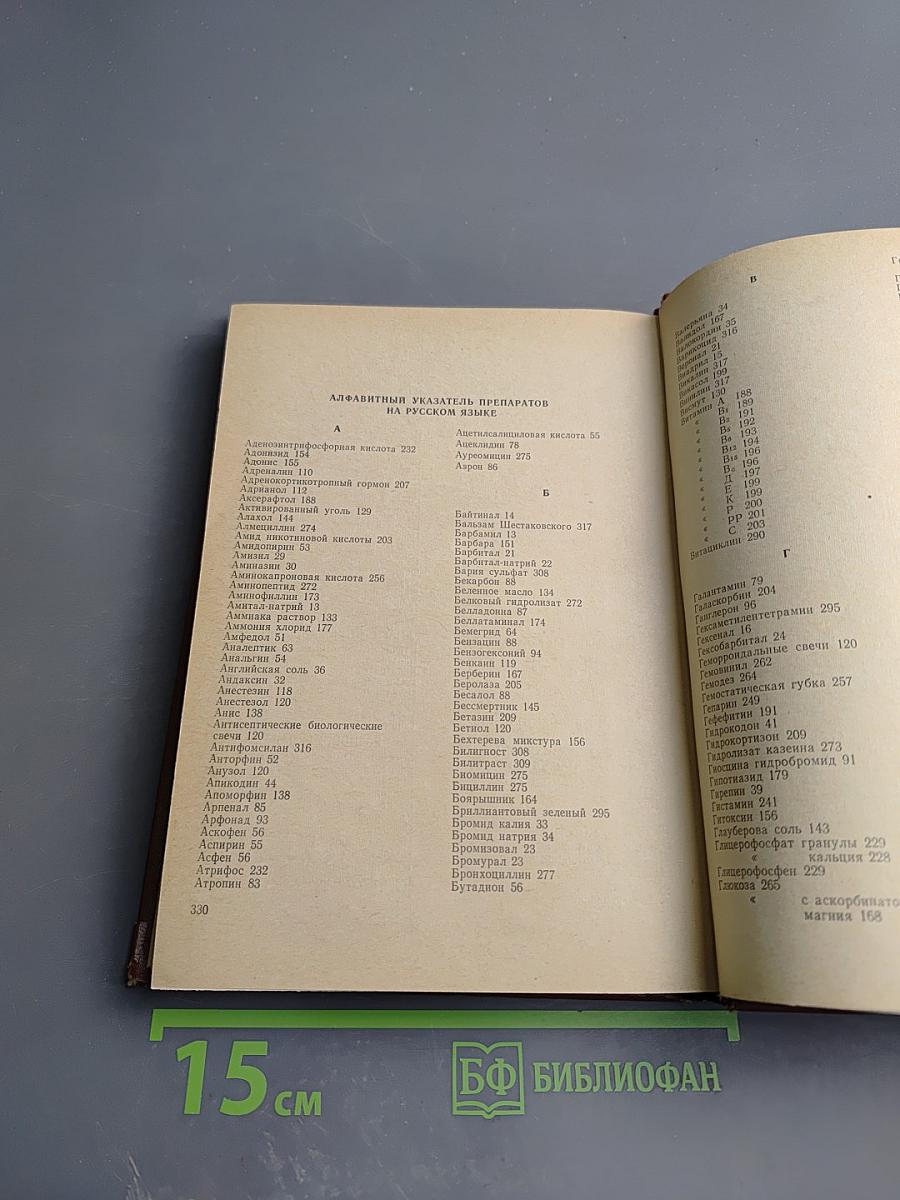 АЛФАВИТНЫЙ УКАЗАТЕЛЬ ПРЕПАРАТОВ
НА РУССКОМ ЯЗЫКЕ
А
Аденозинтрифосфорная кислота 232
Адонизид 154
Адонис 155
Адреналин 110
Адренокортикотропный гормон 207
Адрианол 112
Аксерафтол 188
Активированный уголь 129
Алахол 144
Алмециллин 274
Амид никотиновой кислоты 203
Амидопирин 53
Амизил 29
Аминазин 30
Аминокапроновая кислота 256
Аминопептид 272
Аминофиллин 173
Амитал-натрий 13
Аммиака раствор 133
Аммония хлорид 177
Амфедол 51
Аналептик 63
Анальгин 54
Английская соль 36
Андаксин 32
Анестезин 118
Анестезол 120
Анис 138
Антисептические биологические
свечи 120
Антифомсилан 316
Анторфин 52
Анузол 120
Апикодин 44
Апоморфин 138
Арпенал 85
Арфонад 93
Аскофен 56
Аспирин 55
Асфен 56
Атрифос 232
Атропин 83
330
Ацетилсалициловая кислота 55
Ацеклидин 78
Ауреомицин 275
Аэрон 86
Б
Байтинал 14
Бальзам Шестаковского 317
Барбамил 13
Барбара 151
Барбитал 21
Барбитал-натрий 22
Бария сульфат 308
Бекарбон 88
Беленное масло 134
Белковый гидролизат 272
Белладонна 87
Беллатаминал 174
Бемегрид 64
Бензацин 88
Бензогексоний 94
Бенкаин 119
Берберин 167
Беролаза 205
Бесалол 88
Бессмертник 145
Бетазин 209
Бетиол 120
Бехтерева микстура 156
Билигност 308
Билитраст 309
Биомицин 275
Бициллин 275
Боярышник 164
Бриллиантовый зеленый 295
Бромид калия 33
Бромид натрия 34
Бромизовал 23
Бромурал 23
Бронхоциллин 277
Бутадион 56
В
Валерьяна 34
Валидол 167
Валокордин 35
Варикоцид 316
Веронал 21
Виадрил 15
Викалин 317
Викасол 199
Винилин 317
Висмут 130
Витамин А 188
« В₁ 189
« В₂ 191
« В₅ 192
« В₆ 193
« В₁₂ 194
« В₁₅ 196
« 196
« Д 197
« Е 199
« К 199
« Р 200
« РР 201
« С 203
Витациклин 290
Г
Галантамин 79
Галаскорбин 204
Ганглерон 96
Гексаметилентетрамин 295
Гексенал 16
Гексобарбитал 24
Геморроидальные свечи 120
Гемовинил 262
Гемодез 264
Гемостатическая губка 257
Гепарин 249
Гефефитин 191
Гидрокодон 41
Гидрокортизон 209
Гидролизат казеина 273
Гиосцина гидробромид 91
Гипотиазид 179
Гирепин 39
Гистамин 241
Гитоксин 156
Глауберова соль 143
Глицерофосфат гранулы 229
« кальция 228
Глицерофосфен 229
Глюкоза 265
« с аскорбинато
магния 168
15 см
БФ БИБЛИОФАН